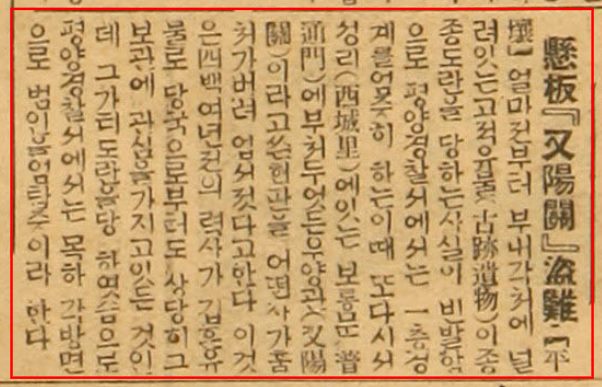 懸板『又陽關』盜難【平
壤】얼마전부터 부내각처에 널
려잇는고적유물(古跡遺物)이종
종도란을 당하는사실이 빈발함
으로 평양경찰서에서는 一층경
계를엄중히 하는이때 또다시서
성리(西城里)에잇는 보통문(普
通門)에부처두엇든우양관(又陽
關)이라고쓴현판을 어떤자가훔
처가버려 업서젓다고한다 이것
은四백여년전의 력사가 깁흔유
물로 당국으로부터도 상당히그
보관에 관심을가지고잇는 것인
데 그가티도란을당 하엿슴으로
평양경찰서에서는 목하 각방면
으로 범인을엄탐중이라 한다